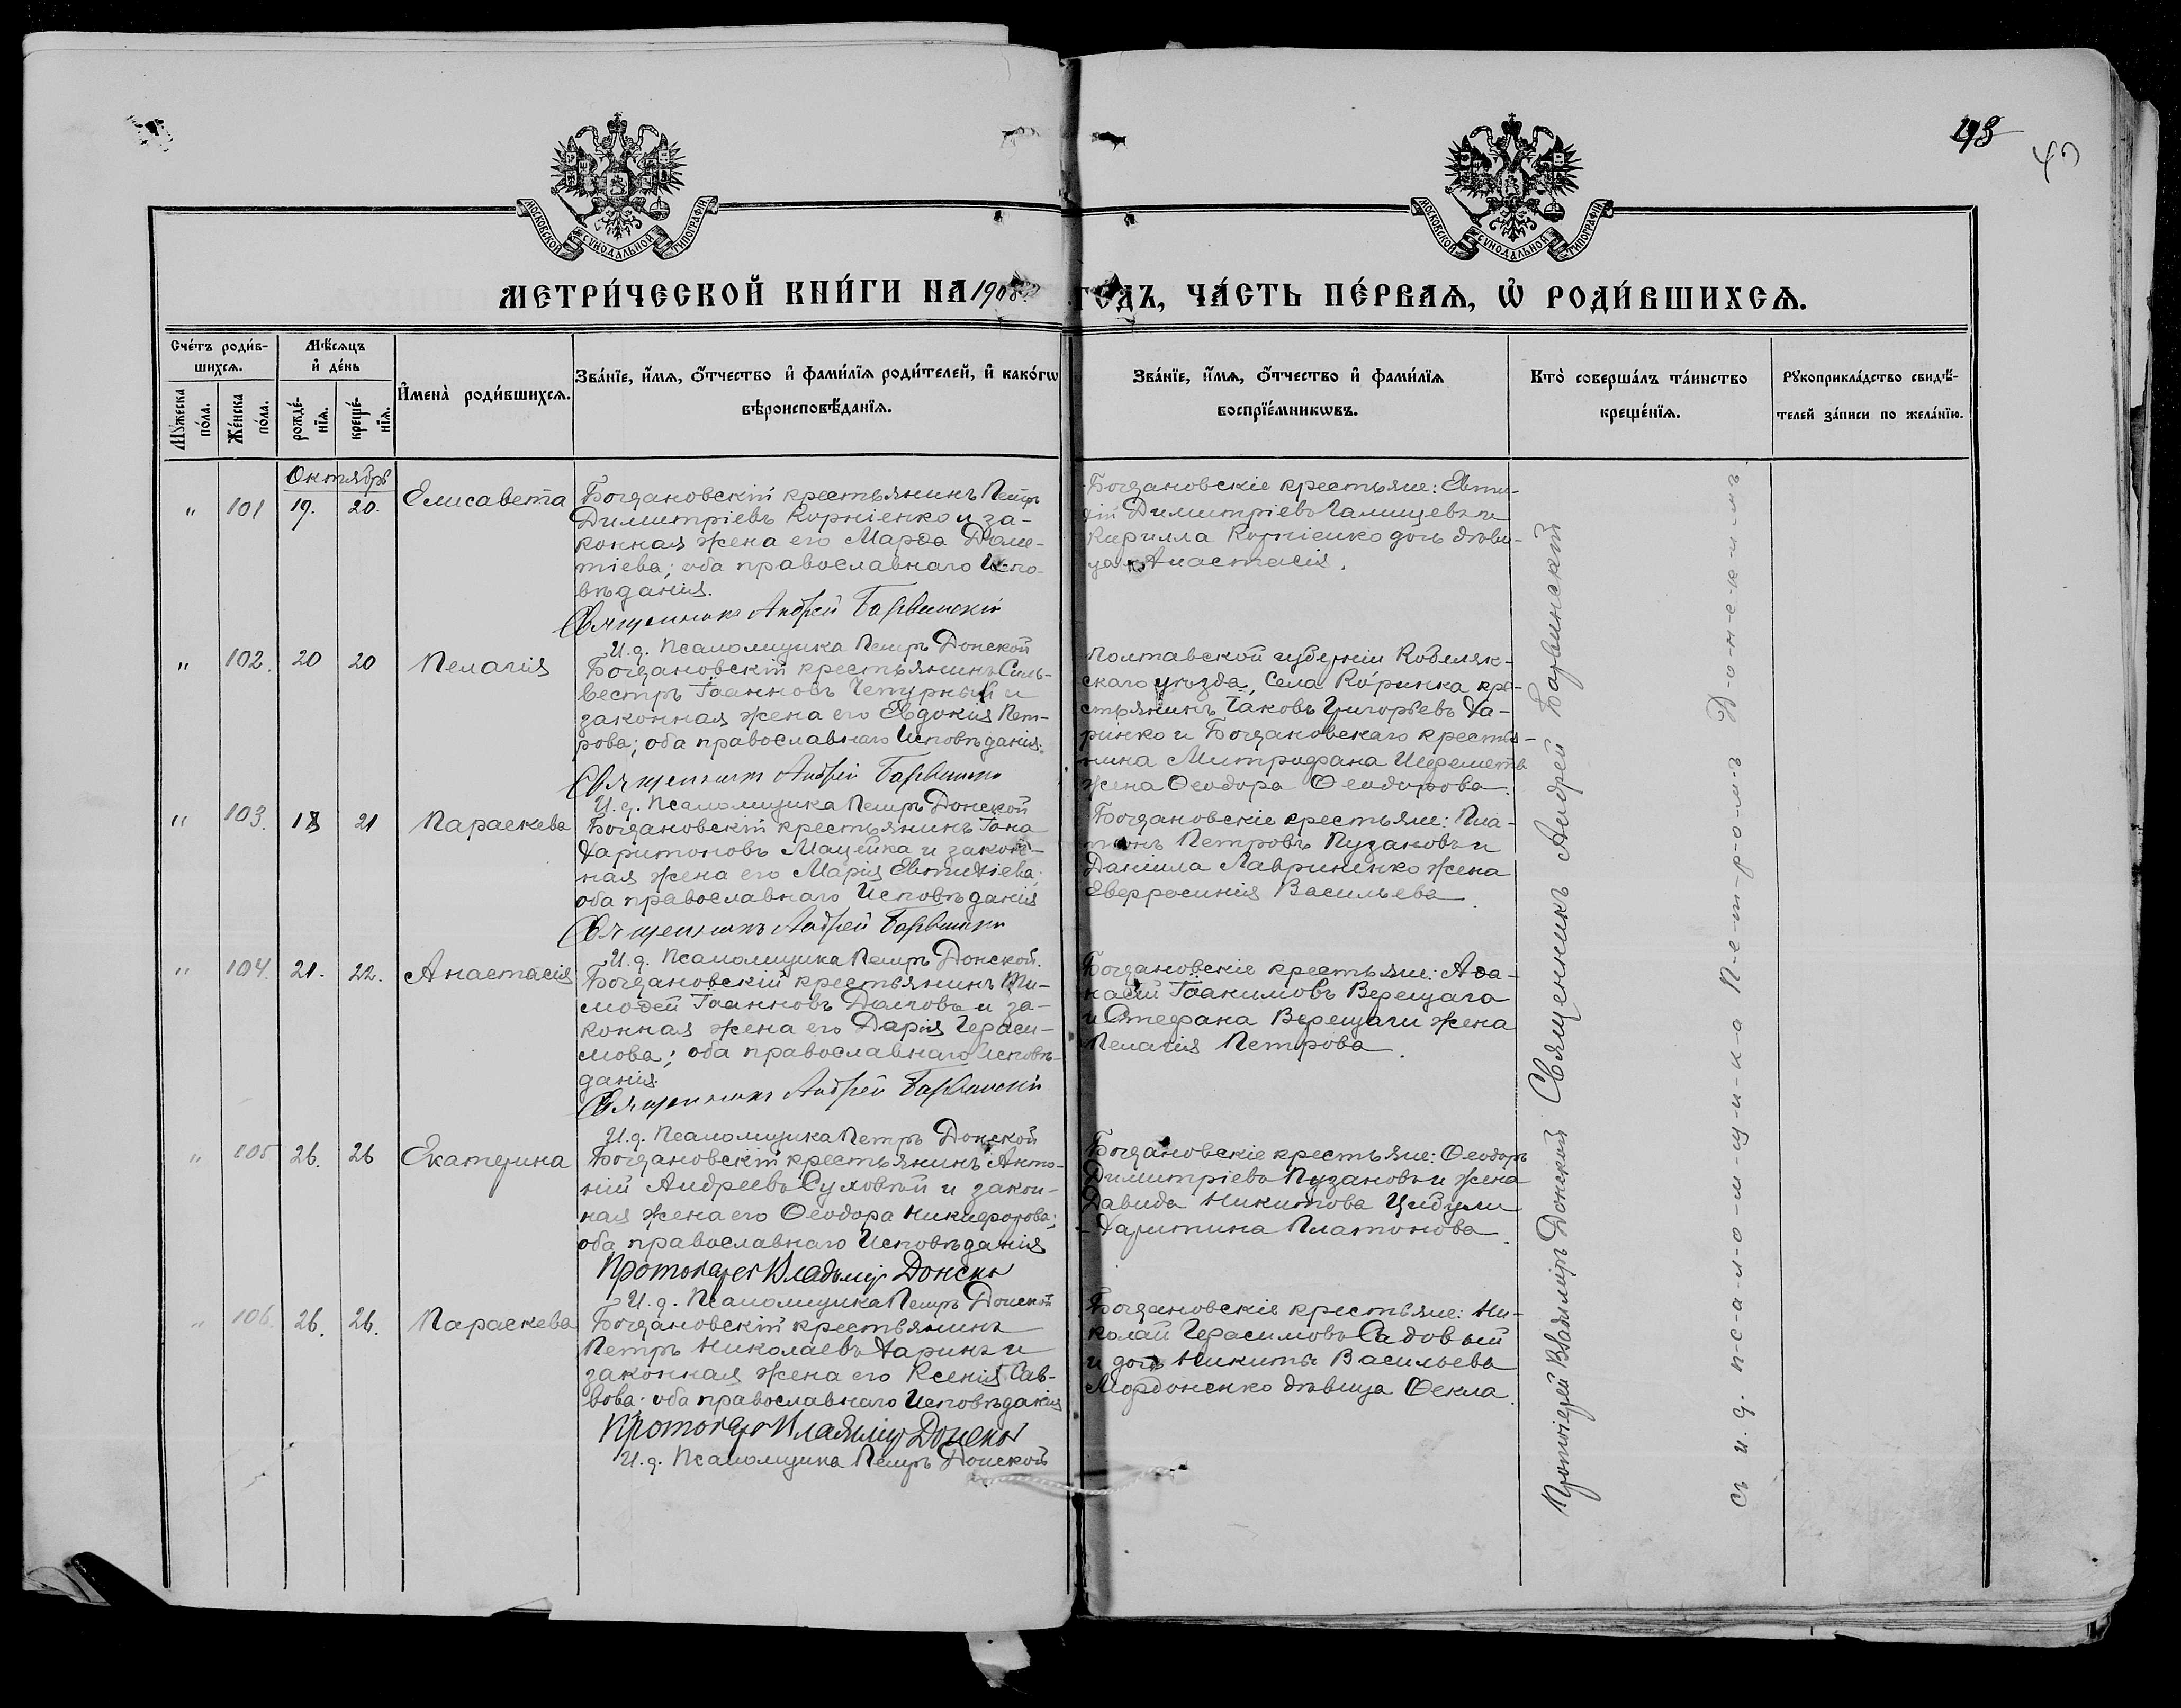 43
МОСКОВСКОЙ СѴНОДАЛЬНОЙ ТИПОГРАФІИ
МОСКОВСКОЙ СѴНОДАЛЬНОЙ ТИПОГРАФІИ
МЕТРИ́ЧЕСКОЙ КНИ́ГИ НА 1908 ГО́ДЪ, ЧА́СТЬ ПЕ́РВАѦ, Ѡ҆ РОДИ́ВШИХСѦ.
Сче́тъ роди́в-
шихсѧ.
Мѣ́сѧцъ
и҆ де́нь
Му́жеска
по́ла.
Же́нска
по́ла.
рожде́-
нїѧ.
креще́-
нїѧ.
И҆мена̀ роди́вшихсѧ.
Зва́нїе, и҆́мѧ, ѻ҆́тчество и҆ фами́лїѧ роди́телей, и҆ како́гѡ
вѣроисповѣ́данїѧ.
Зва́нїе, и҆́мѧ, ѻ҆́тчество и҆ фами́лїѧ
воспрїе́мникѡвъ.
Кто̀ соверша́лъ та́инство
креще́нїѧ.
Рꙋкоприкла́дство свидѣ́-
телей за́писи по жела́нїю.
Октябрь
" 101 19. 20. Елисавета
Богдановскій крестьянинъ Петръ
Димитріевъ Корніенко и за-
конная жена его Марѳа Доме-
тіева; оба православнаго Испо-
вѣданія.
Священникъ Андрей Барвинскій
И.д. Псаломщика Петръ Донской
Богдановскіе крестьяне: Евти-
хій Димитріевъ Галищевъ и
Кирилла Корніенко дочь дѣви-
ца Анастасія.
" 102. 20 20 Пелагія
Богдановскій крестьянинъ Силь-
вестръ Іоанновъ Чепурный и
законная жена его Евдокія Пет-
рова; оба православнаго Исповѣданія.
Священникъ Андрей Барвинскій
И.д. Псаломщика Петръ Донской
Полтавской губерніи Кобеляк-
скаго уѣзда, села кре-
стьянинъ Іаковъ Григорьевъ Ха-
ринко и Богдановскаго крестья-
нина Митрофана Шеремета
жена Ѳеодора Ѳеодорова.
" 103. 18 21 Параскева
Богдановскій крестьянинъ Іона
Харитоновъ Мацейка и закон-
ная жена его Марія Евтихіева;
оба православнаго Исповѣданія
Священникъ Андрей Барвинскій
И.д. Псаломщика Петръ Донской.
Богдановскіе крестьяне: Пла-
тонъ Петровъ Пузановъ и
Даніила Лавриненко жена
Евфросинія Васильева.
" 104. 21. 22. Анастасія
Богдановскій крестьянинъ Ти-
моѳей Іоанновъ Долговъ и за-
конная жена его Дарія Гераси-
мова; оба православнаго Исповѣ-
данія.
Священникъ Андрей Барвинскій
И.д. Псаломщика Петръ Донской
Богдановскіе крестьяне: Аѳа-
насій Іоакимовъ Верещага
и Стефана Верещаги жена
Пелагія Петрова.
" 105 26. 26 Екатерина
Богдановскій крестьянинъ Анто-
ній Андреевъ Суховѣй и закон-
ная жена его Ѳеодора Никифорова;
оба православнаго Исповѣданія
Протоіерей Владиміръ Донской
И.д. Псаломщика Петръ Донской
Богдановскіе крестьяне: Ѳеодоръ
Димитріевъ Пузановъ и жена
Давида Никитова Цибули
Харитина Платонова.
" 106. 26. 26. Параскева
Богдановскій крестьянинъ
Петръ Николаевъ Харинъ и
законная жена его Ксенія Сав-
вова; оба православнаго Исповѣданія
Протоіерей Владиміръ Донской
И.д. Псаломщика Петръ Донской
Богдановскіе крестьяне: Ни-
колай Герасимовъ Садовый
и дочь Никиты Васильева
Мордоненко дѣвица Ѳекла.
Протоіерей Владиміръ Донской Священникъ Андрей Барвинскій
съ и. д. п-с-а-л-о-м-щ-и-к-а П-е-т-р-о-м-ъ Д-о-н-с-к-и-м-ъ